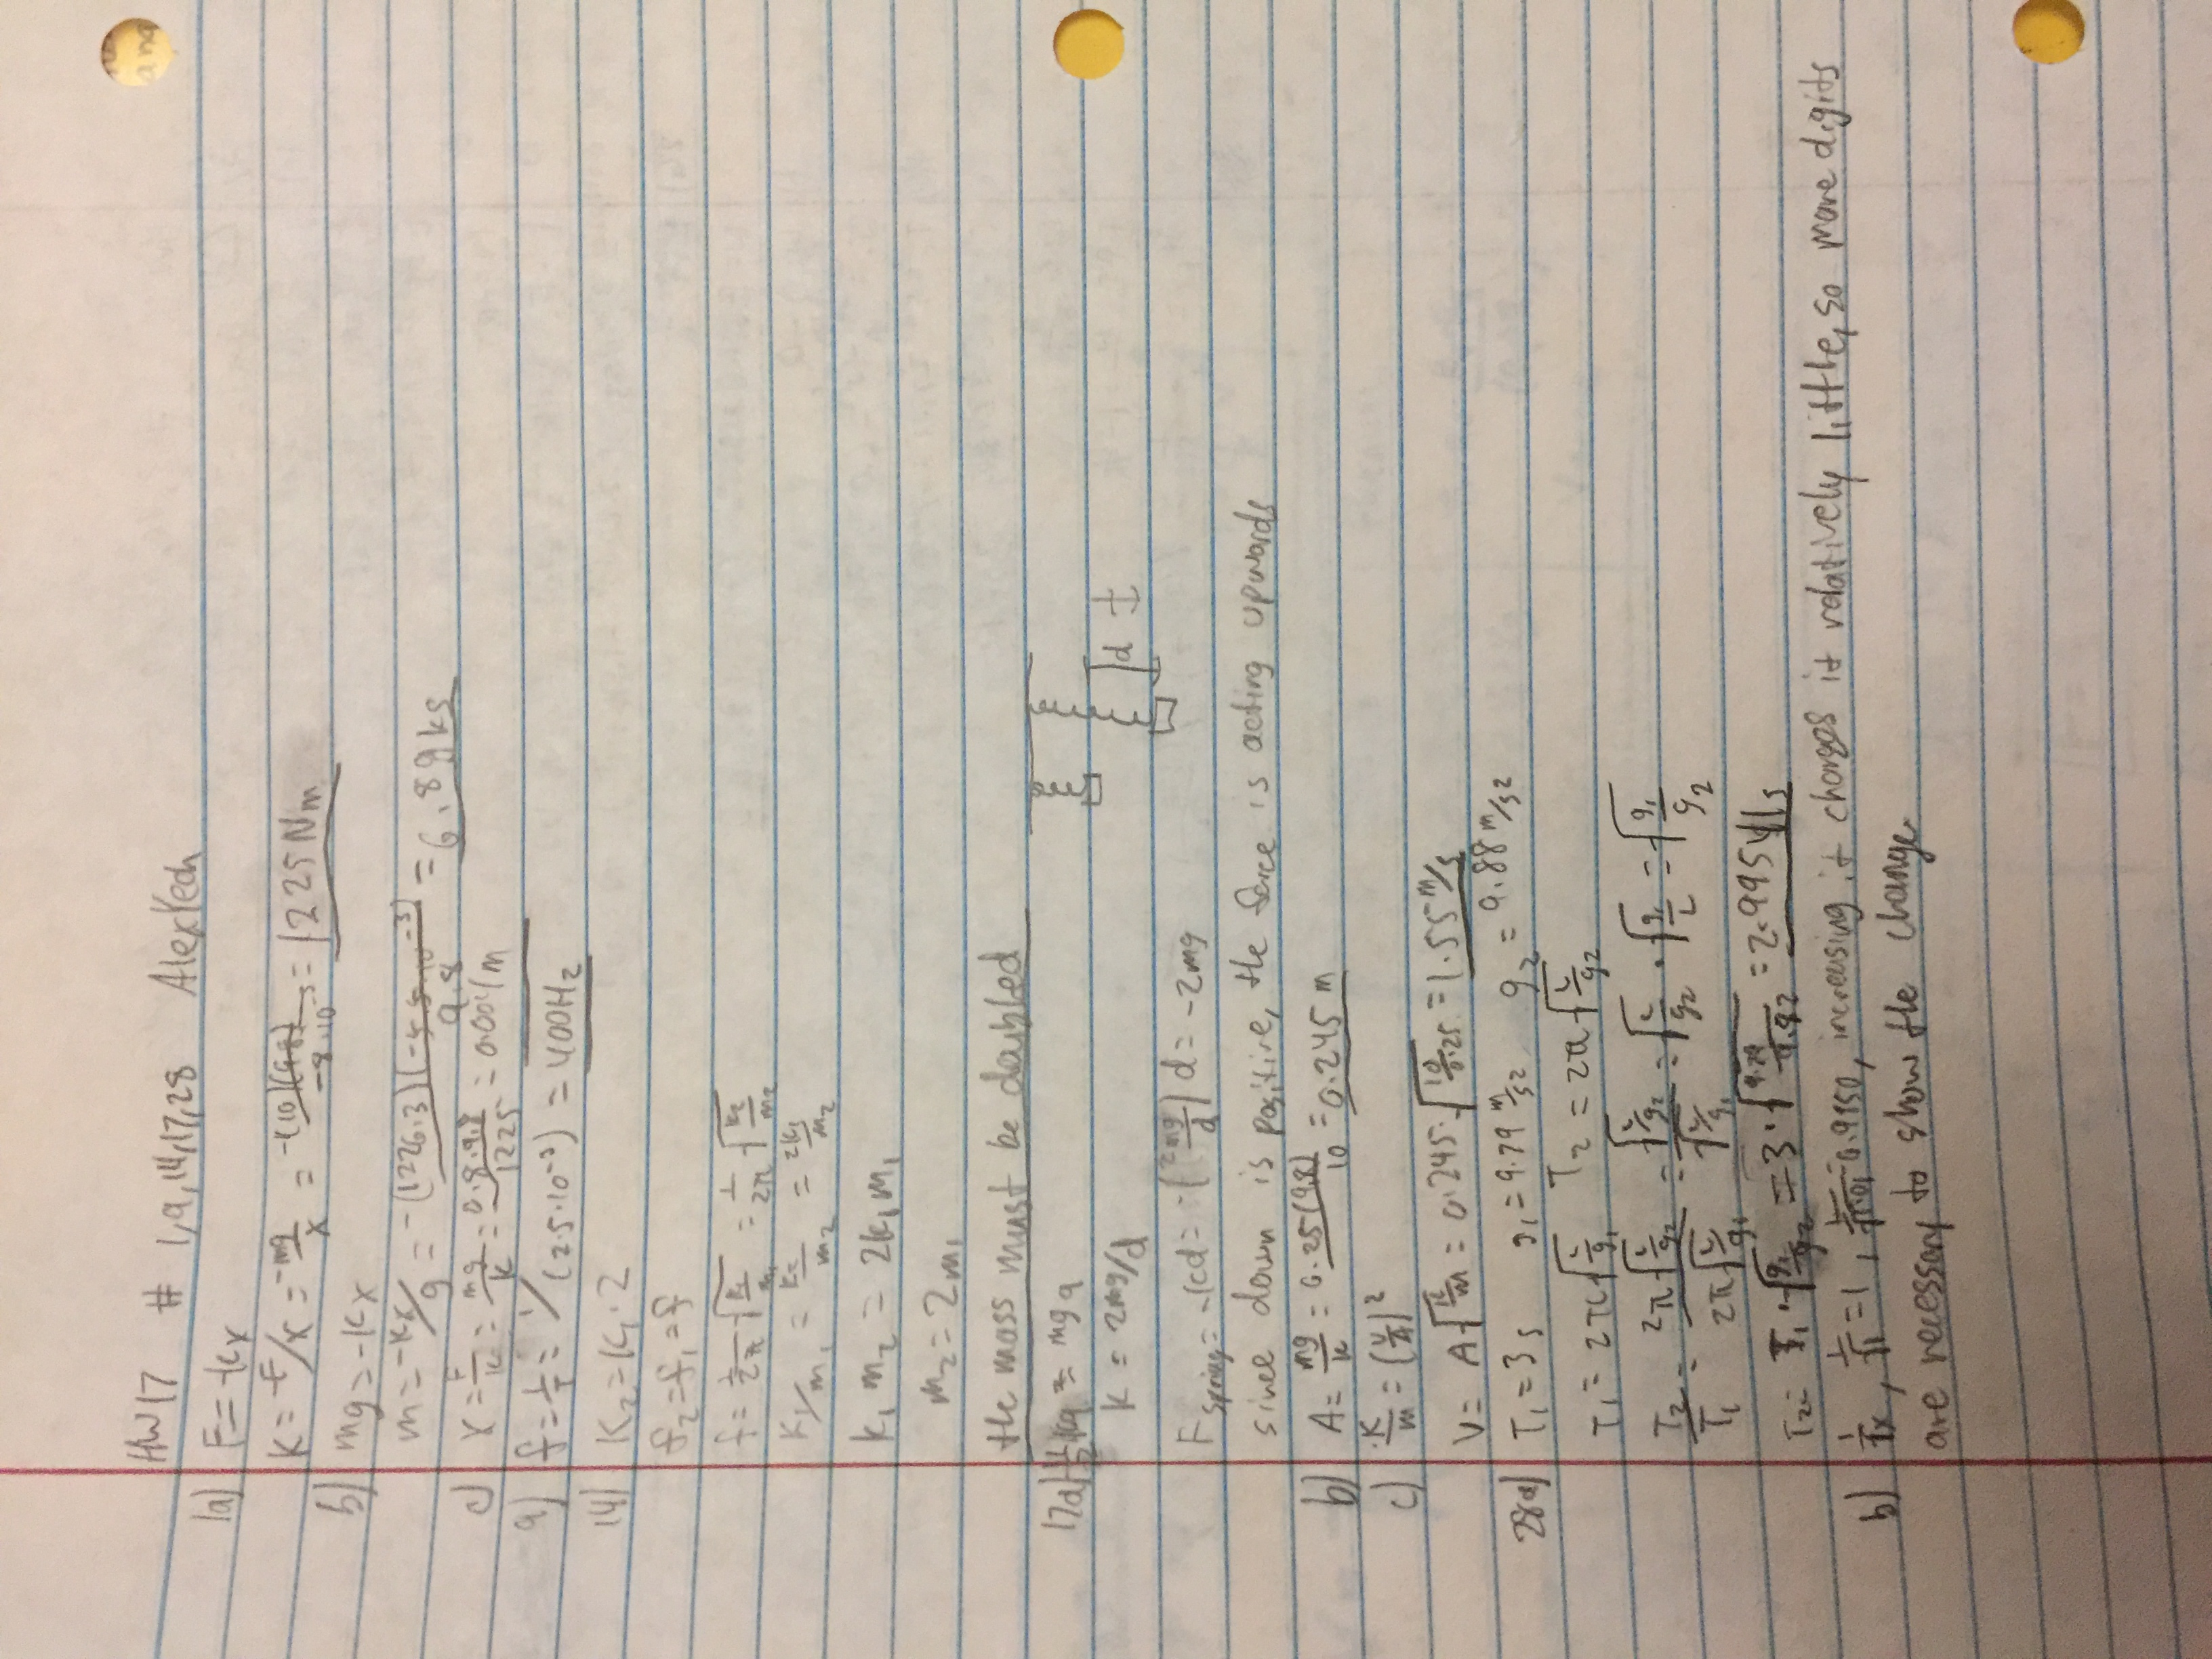 HW17 # 1,9,14,17,28 Alex Yech
1a) F = -kx
K = -F/x = -mg/x = -(10)(9.8)/-8·10^-3 = 1225 Nm
b) mg = -kx
m = -kx/g = -(1226.3)(-5.5·10^-3)/9.8 = 6.89 kg
c) x = F/k = mg/k = 0.8·9.8/1225 = 0.0064 m
9) f = 1/T = 1/(2.5·10^-3) = 400Hz
14) K₂ = K₁·2
f₂ = f₁ = f
f = 1/2π √(k₁/m₁) = 1/2π √(k₂/m₂)
K₁/m₁ = k₂/m₂ = 2k₁/m₂
k₁ m₂ = 2k₁m₁
m₂ = 2m₁
the mass must be doubled
17a)
k = 2mg/d
d +
F spring = -kd = -(2mg/d) d = -2mg
since down is positive, the force is acting upwards
b) A = mg/k = 0.25(9.8)/10 = 0.245 m
c) k/m = (v/A)²
v = A√(k/m) = 0.245·√(10/0.25) = 1.55 m/s
28a) T₁ = 3s g₁ = 9.79 m/s² g₂ = 9.88 m/s²
T₁ = 2π√(L/g₁) T₂ = 2π√(L/g₂)
T₂/T₁ = 2π√(L/g₂)/2π√(L/g₁) = √(L/g₂)/√(L/g₁) = √(L/g₂) · √(g₁/L) = √(g₁/g₂)
T₂ = T₁·√(g₁/g₂) = 3·√(9.79/9.82) = 2.99541s
b) 1/√x, 1/√1 = 1, 1/√1.01 = 0.9950, increasing it changes it relatively little, so more digits
are necessary to show the change